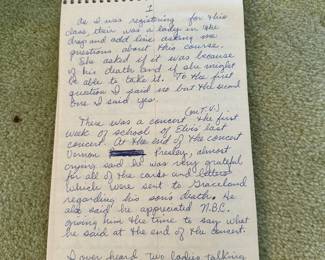 I
As I was registering for this
class their was a lady in the
drop and add line asking me
questions about this course.
She asked if it was because
of his death and if she might
be able to take it. To the first
question I said no but the second
one I said yes.
There was a concert (on T.V.) the first
week of school of Elvis' last
concert. At the end of the concert
Vernon Presley, almost
crying said he was very grateful
for all of the cards and letters
which were sent to Graceland
regarding his son's death. He
also said he appreciated N.B.C.
giving him the time to say what
he said at the end of the concert.
I over heard two ladies talking